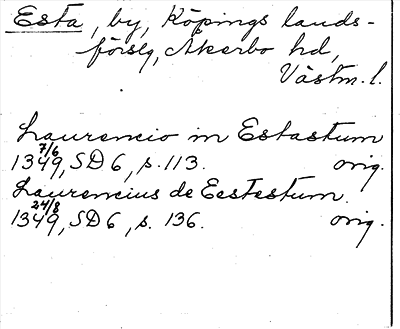 Esta, by, Köpings lands-
förslg, Åkerbo hd,
Västm. l.
Laurencio in Estastum
7/6
1349, SD 6, s. 113. orig.
Laurencius de Eestestum.
24/8
1349, SD 6, s. 136. orig.